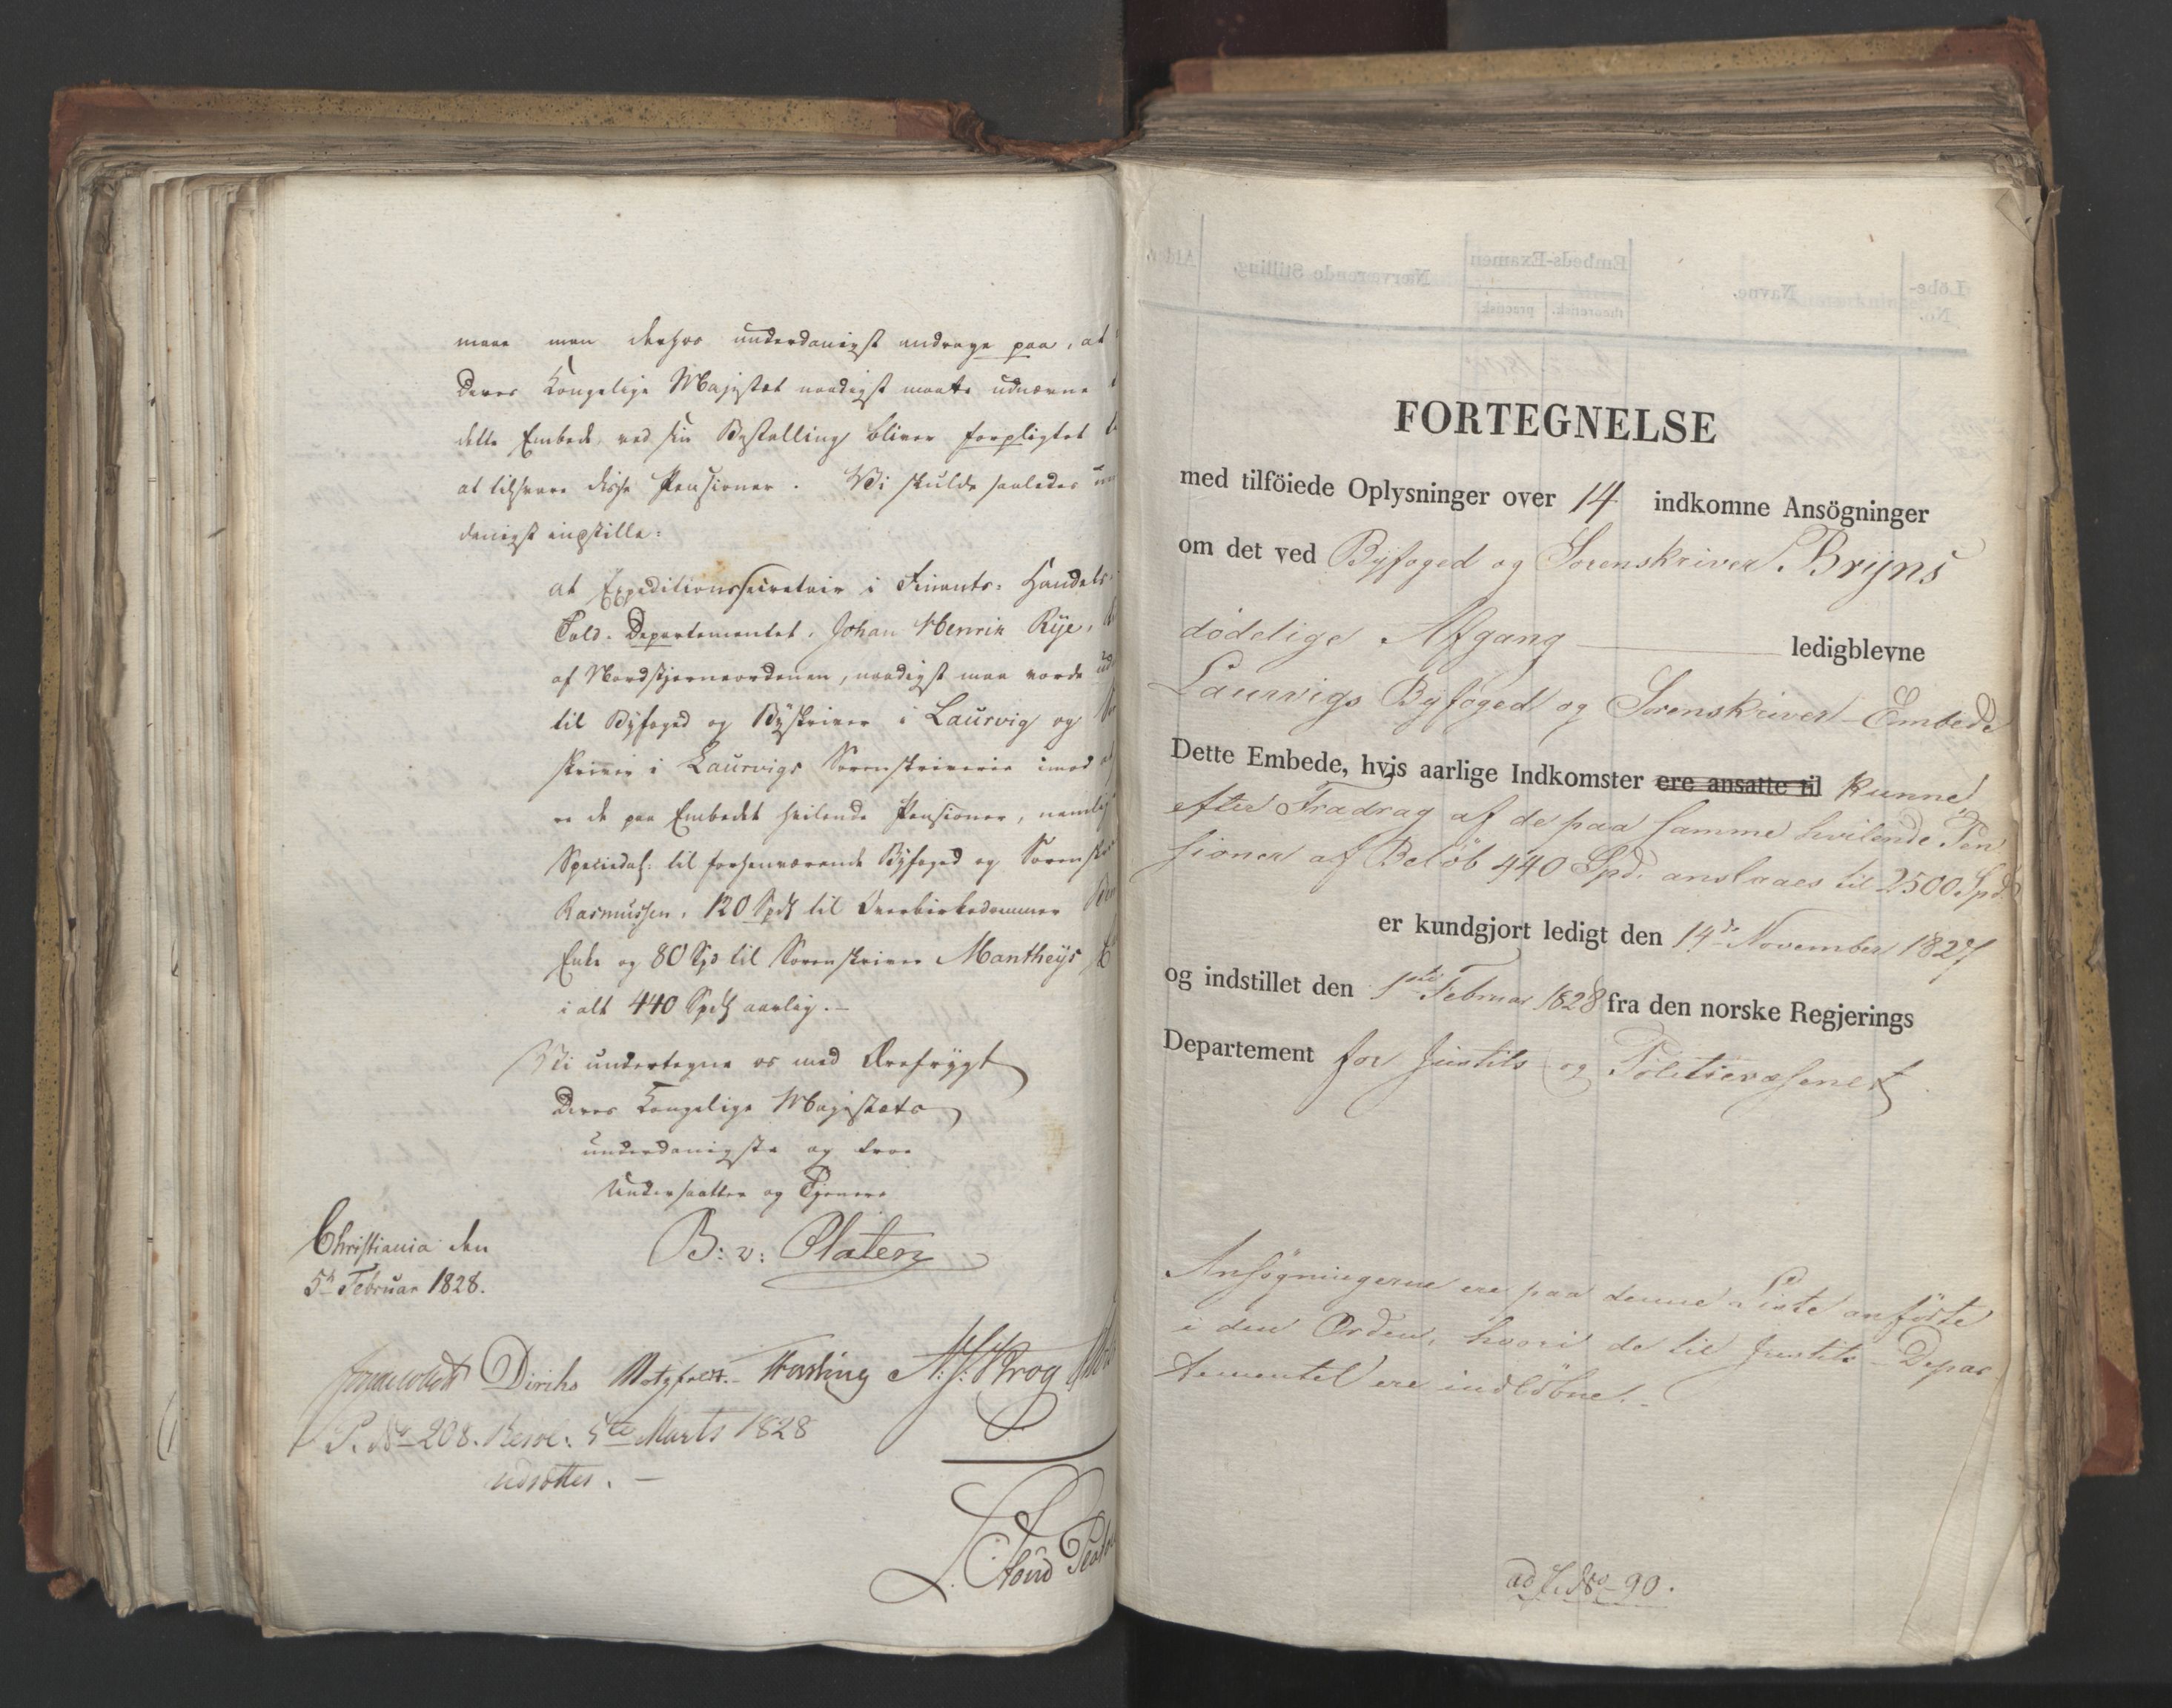 maae man derhos underdanigst andrage paa, at
Deres Kongelige Majestæt naadigst maatte udnævne
dette Embede, ved sin Bestalling bliver forpligtet
at tilsvare disse Pensioner. Vi skulde saaledes un
danigst indstille:
at Expeditionssecretair i Finants- Handels-
Told-Departementet, Johan Henrik Rye,
af Nordstjerneordenen, naadigst maa vorde ud
til Byfoged og Byskriver i Laurvig og
skriver i Laurvigs Sorenskriverie imod
re de paa Embedet hvilende Pensioner, nemlig
Speciedal. til forhenværende Byfoged og Sorensk
Rasmussen, 120 Spd til Overbirkedommer
Enke og 80 Spd til Sorenskriver Mantheys
i alt 440 Spd aarlig.-
Vi undertegne os med Ærefrygt
Deres Kongelige Majestæts
underdanigste og troe
Undersaatter og Tjenere
B: v: Platen
Christiania den
5te Februar 1828.
Diriks Motzfeldt. Fasting A. S. Krog
P. No 208. Resol. 5te Marts 1828
udsættes. —
FORTEGNELSE
med tilföiede Oplysninger over 14 indkomne Ansögninger
om det ved Byfoged og Sorenskriver Bryns
dödelige Afgang ledigblevne
Laurvigs Byfoged og Sorenskriver-Embede
Dette Embede, hvis aarlige Indkomster ere ansatte til kunne,
efter Fradrag af de paa samme hvilende Pen
sioner af Belöb 440 Spd. anslaaes til 2500 Spd.
er kundgjort ledigt den 14de November 1827
og indstillet den 1ste Februar 1828 fra den norske Regjerings
Departement for Justits- og Politievæsenet
Ansögningerne ere paa denne Liste anförte
i den Orden, hvori de til Justits-Depar
tementet ere indlöbne.-
ad J. No 90.